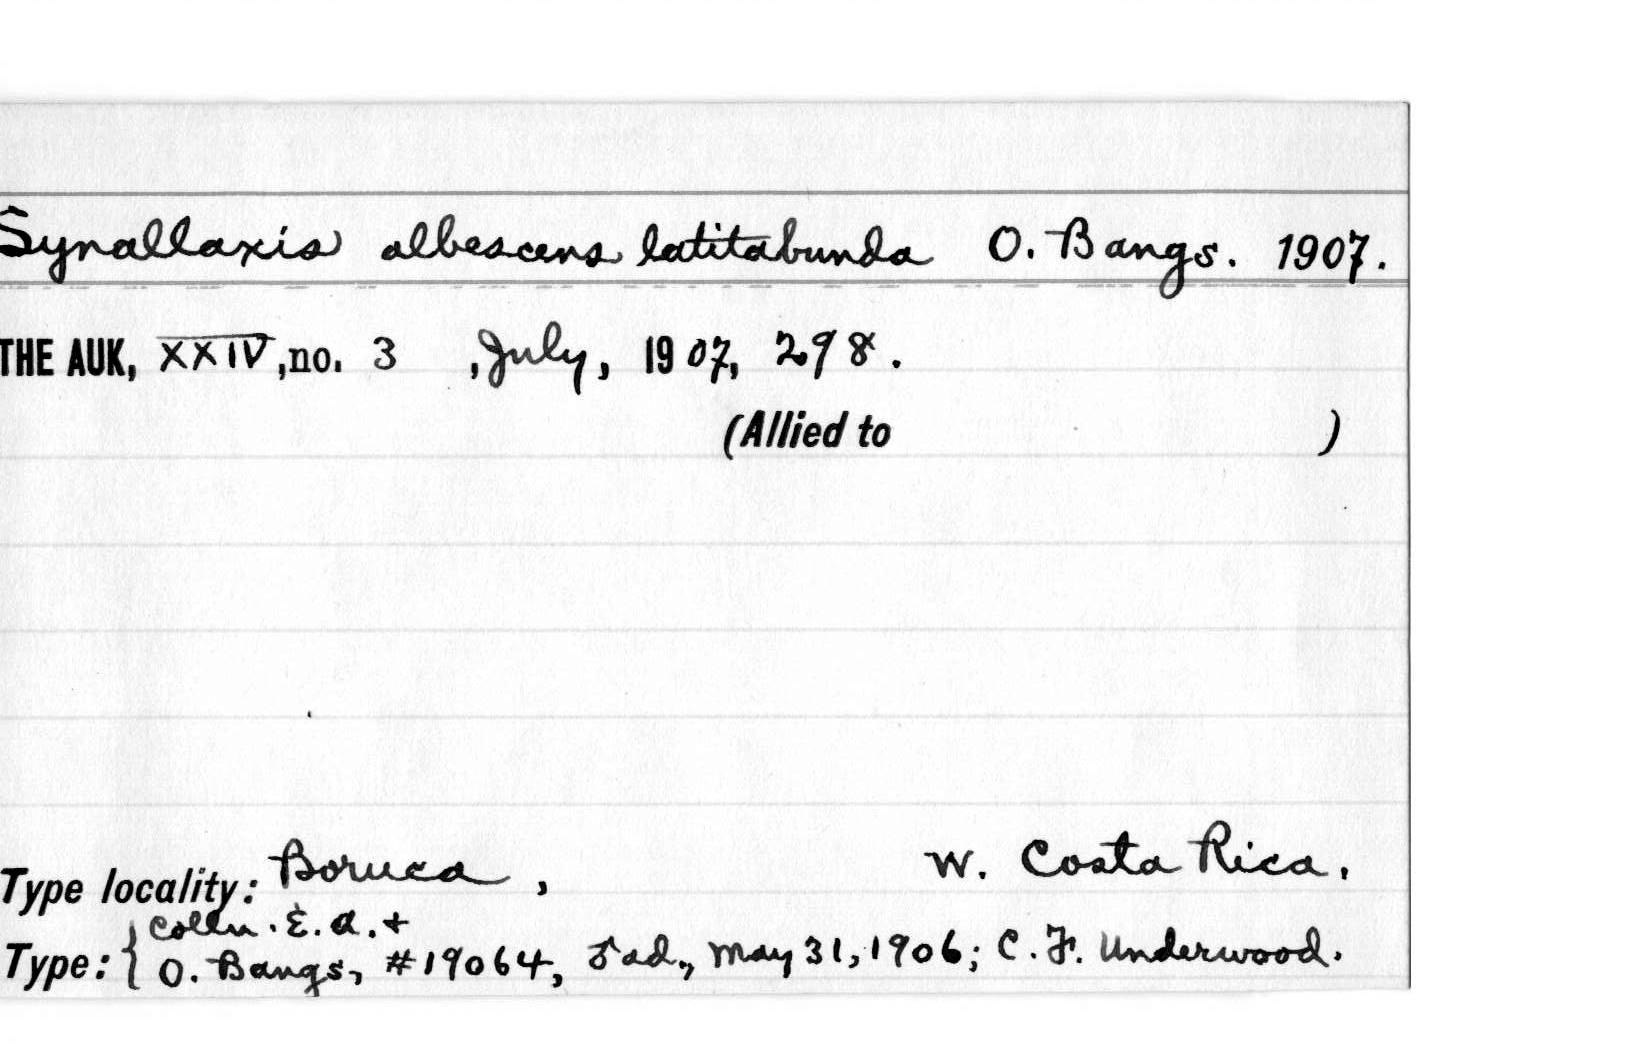 Synallaxis albescens latitabunda O. Bangs. 1907.
THE AUK, XXIV, no. 3, July, 1907, 298.
(Allied to )
Type locality: Boruca, W. Costa Rica.
Colln. E. A. +
Type: { O. Bangs, #19064, ♂ ad., May 31, 1906; C. F. Underwood.